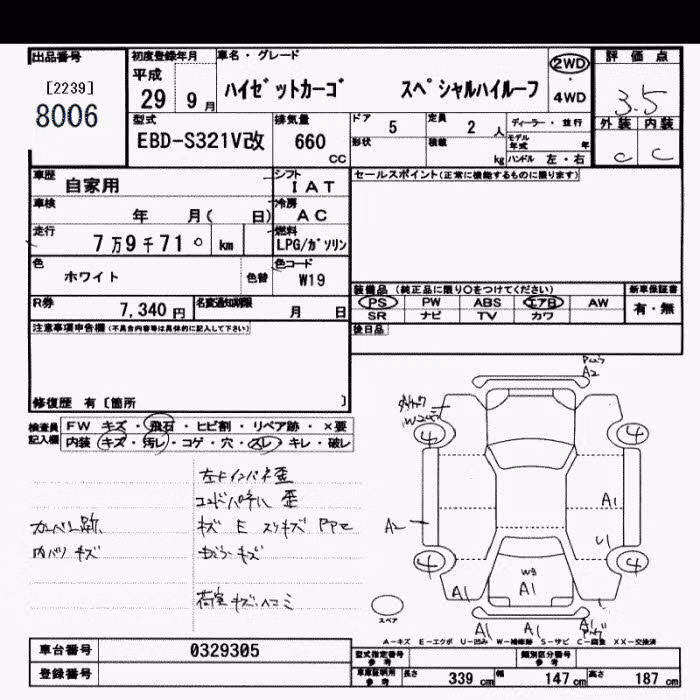 出品番号 初度登録年月 車名・グレード 評価点
[2239] 平成 2WD
8006 29 9月 ハイゼットカーゴ スペシャルハイルーフ 4WD 3.5
型式 排気量 ドア 5 定員 2人 ディーラー・並行 外装 内装
EBD-S321V改 660 cc 形状 積載 kg モデル年式 年 ハンドル 左・右 C C
車歴 自家用 シフト IAT セールスポイント(正常に機能するものに限ります)
車検 年 月( 日) 冷房 AC
走行 7万9千710 km 燃料 LPG/ガソリン
色 ホワイト 色替 色コード W19
装備品 (純正品に限り○をつけてください) 新車保証書
R券 7,340円 名変通知期限 月 日 PS PW ABS エアB AW 有・無
SR ナビ TV カワ
注意事項申告欄(不具合内容等は具体的に記入して下さい) 後日品
修復歴 有〔箇所 〕
検査員記入欄 FW キズ・飛石・ヒビ割・リペア跡・×要
内装 キズ・汚レ・コゲ・穴・スレ・キレ・破レ
左ドインパネ歪
歪
カーペ 跡 キズ E スリキズ
内バリ キズ キズ
荷室 キズヘコミ
A2
4 4
A1
A2 U1
4 4
W3
A1 A1
A1 A1 A1
スペア
A−キズ E−エクボ U−凹み W−補修跡 S−サビ C−腐食 XX−交換済
車台番号 0329305 型式指定番号 参考 類別区分番号 参考
登録番号 車庫証明用 参考 長さ 339cm 幅 147cm 高さ 187cm